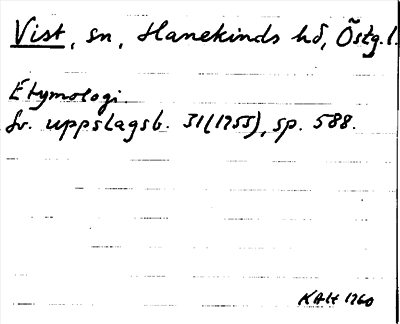 Vist, sn, Hanekinds hd, Östg.l.
Etymologi
Sv. uppslagsb. 31(1955), sp. 588.
KAH 1960